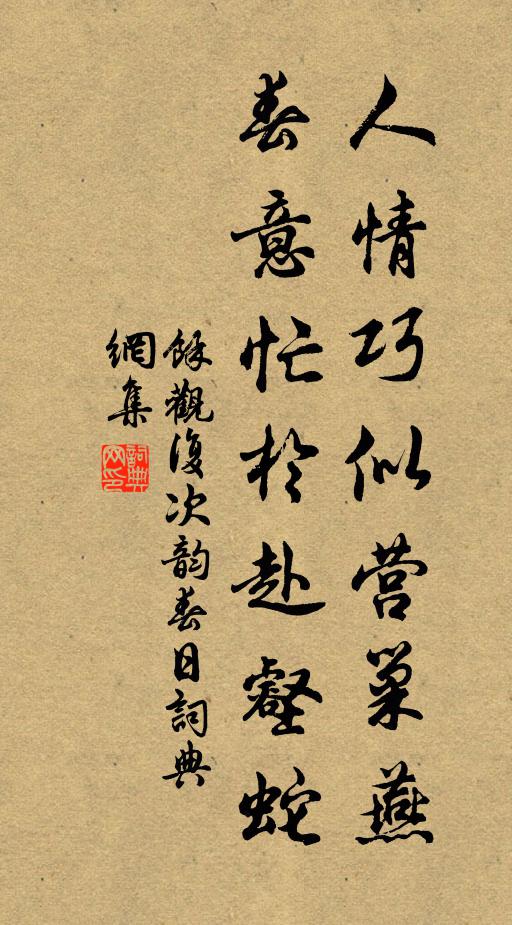 人情巧似营巢燕
春意忙於赴壑蛇
餘觀復次韵春日詞典
網集
詞典網印